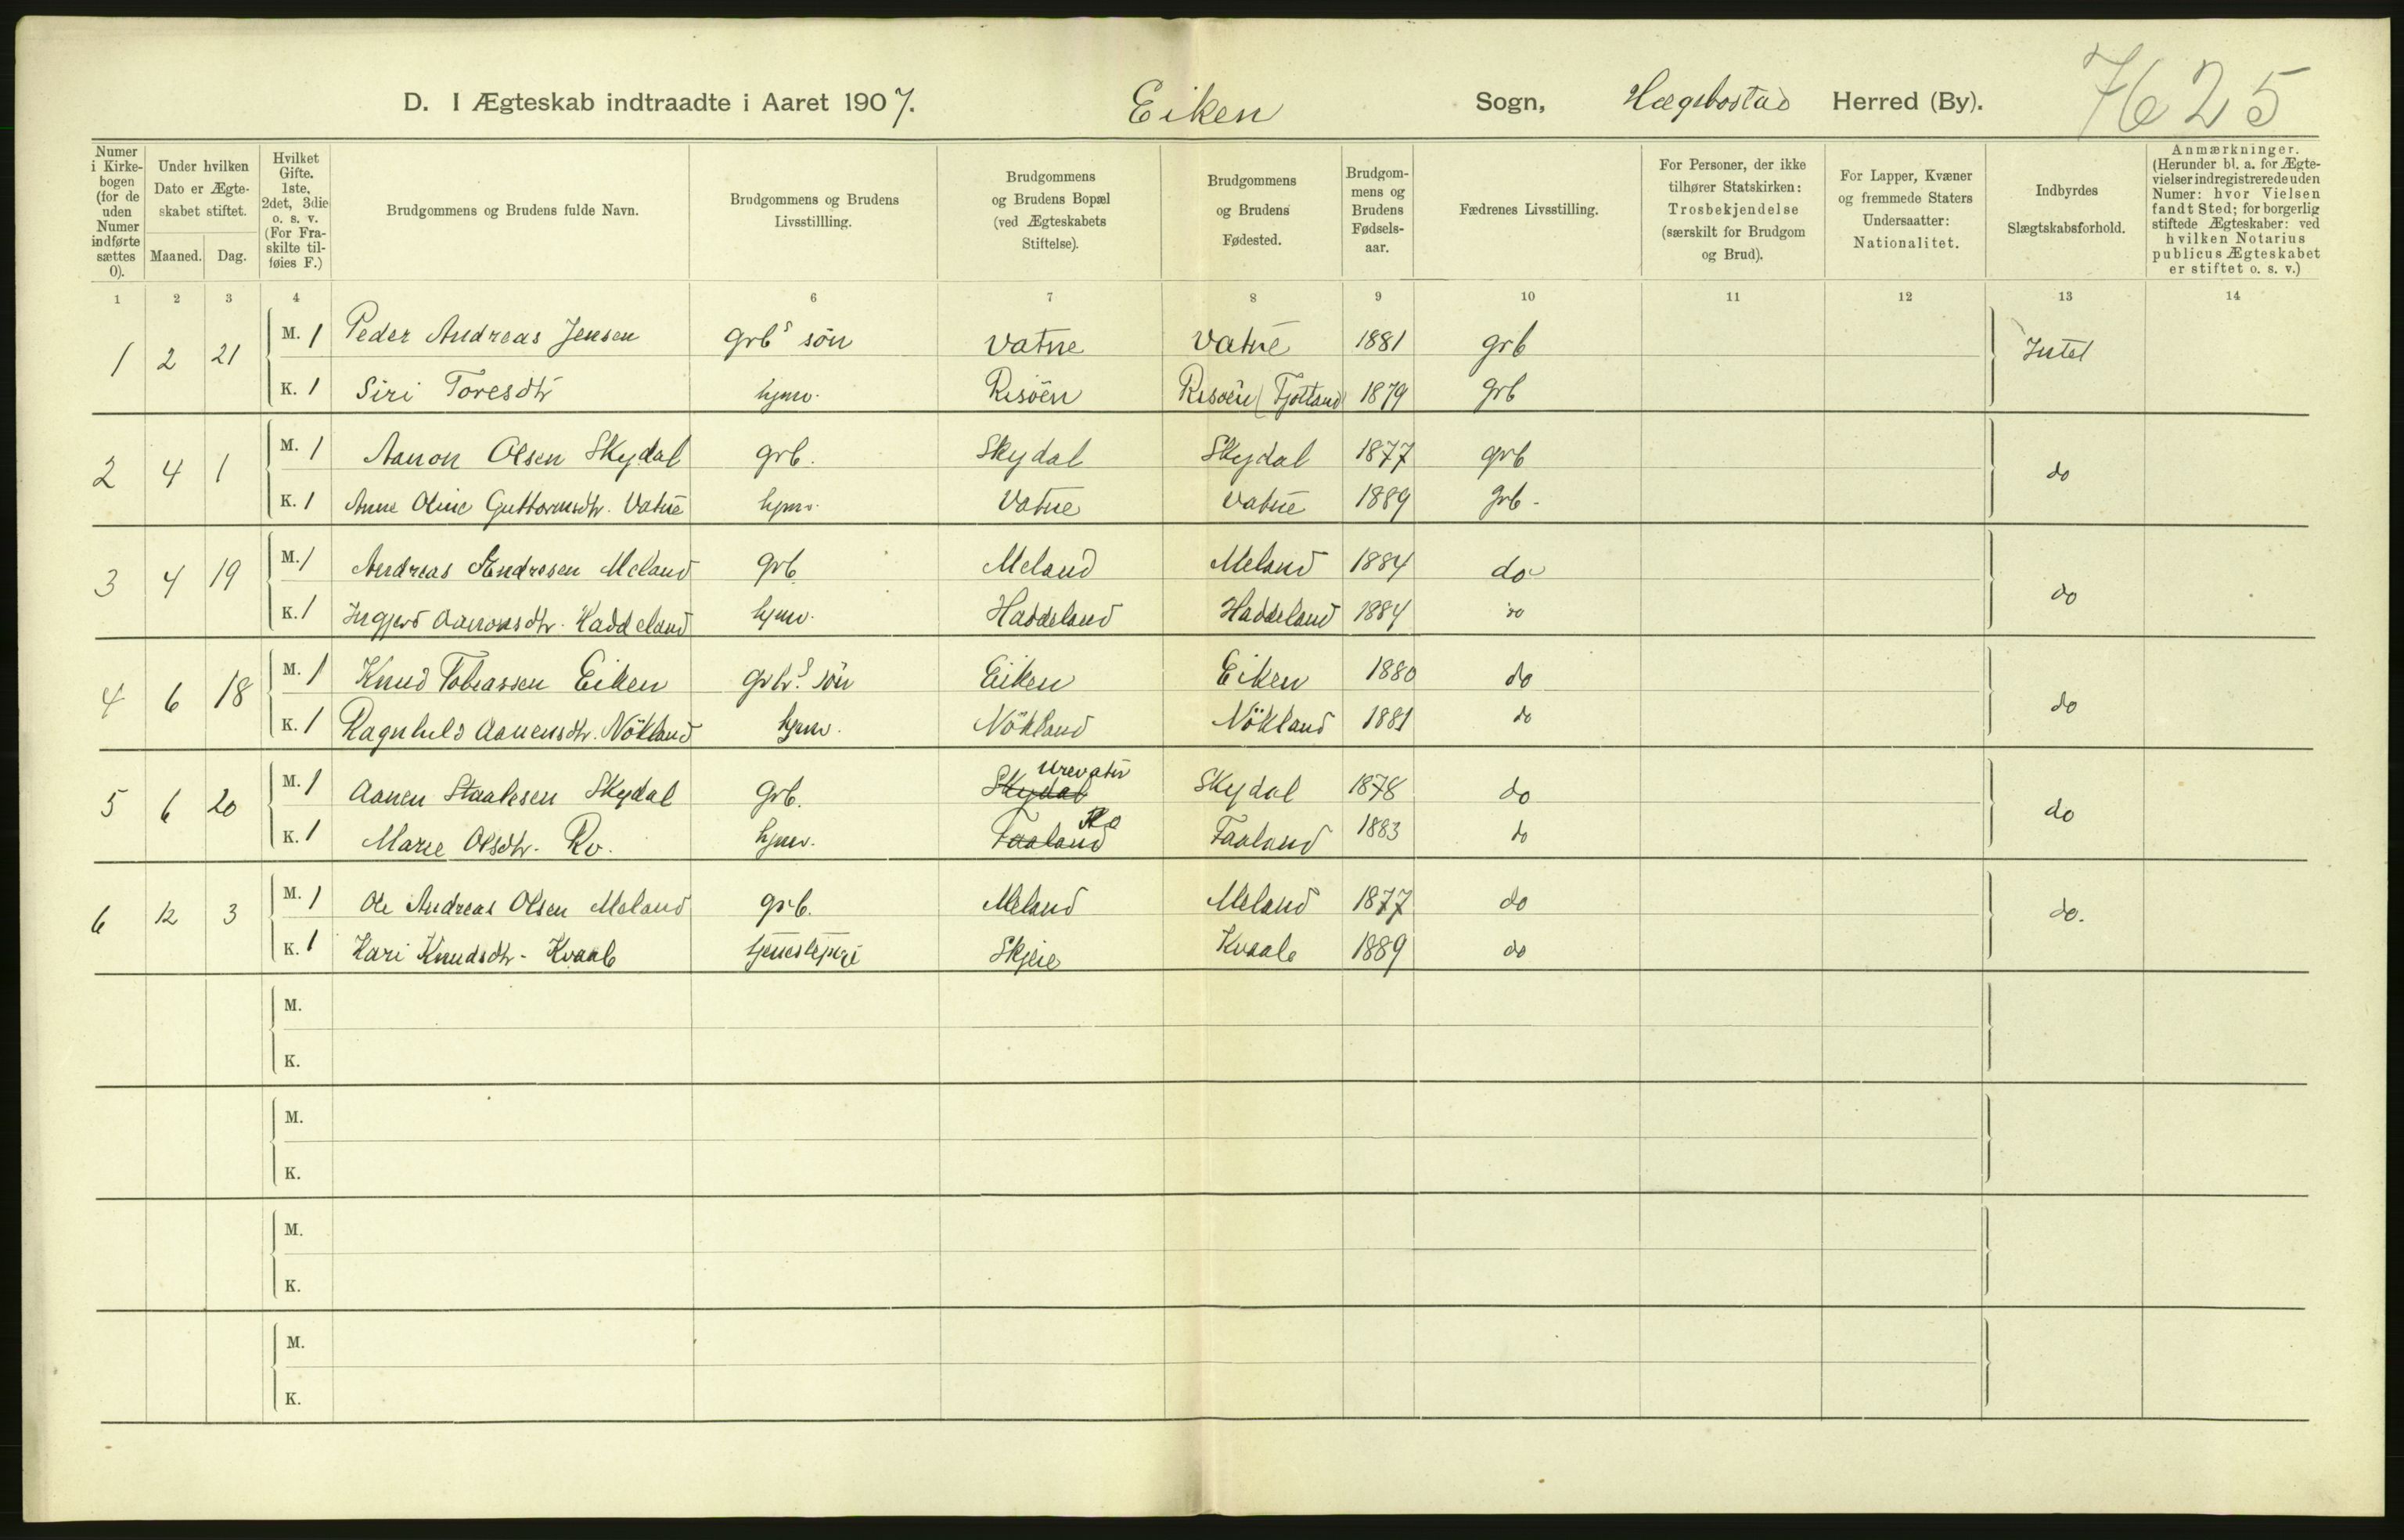 D. I Ægteskab indtraadte i Aaret 1907. Eiken Sogn, Hægebostad Herred (By). 7625
Numer i Kirkebogen (for de uden Numer indførte sættes 0).
Under hvilken Dato er Ægteskabet stiftet.
Maaned. Dag.
Hvilket Gifte. 1ste, 2det, 3die o. s. v. (For Fraskilte tilføies F.)
Brudgommens og Brudens fulde Navn.
Brudgommens og Brudens Livsstillling.
Brudgommens og Brudens Bopæl (ved Ægteskabets Stiftelse).
Brudgommens og Brudens Fødested.
Brudgommens og Brudens Fødselsaar.
Fædrenes Livsstilling.
For Personer, der ikke tilhører Statskirken: Trosbekjendelse (særskilt for Brudgom og Brud).
For Lapper, Kvæner og fremmede Staters Undersaatter: Nationalitet.
Indbyrdes Slægtskabsforhold.
Anmærkninger. (Herunder bl. a. for Ægtevielser indregistrerede uden Numer: hvor Vielsen fandt Sted; for borgerlig stiftede Ægteskaber: ved hvilken Notarius publicus Ægteskabet er stiftet o. s. v.)
1 2 3 4 6 7 8 9 10 11 12 13 14
1 2 21 M. 1 Peder Andreas Jensen grbs søn Vatne Vatne 1881 grb Intet
K. 1 Siri Toresdtr hjmv. Risöen Risöen (Fjotland) 1879 grb
2 4 1 M. 1 Aanon Olsen Skydal grb. Skydal Skydal 1877 grb do
K. 1 Anne Oline Guttormsdtr. Vatne hjmv. Vatne Vatne 1889 grb.
3 4 19 M. 1 Andreas Endresen Meland grb Meland Meland 1884 do do
K. 1 Ingjerd Aanonsdtr. Haddeland hjmv. Haddeland Haddeland 1884 do
4 6 18 M. 1 Knud Tobiassen Eiken grbrs søn Eiken Eiken 1880 do do
K. 1 Ragnhild Aanensdtr. Nökland hjmv. Nökland Nökland 1881 do
5 6 20 M. 1 Aanen Staalesen Skydal grb. Skydal Urevatn Skydal 1878 do do
K. 1 Marie Olsdtr. Ro. hjmv. Faaland Ro Faaland 1883 do
6 12 3 M. 1 Ole Andreas Olsen Meland grb. Meland Meland 1877 do do.
K. 1 Kari Knudsdtr. Kvaale Skjeie Kvaale 1889 do
M.
K.
M.
K.
M.
K.
M.
K.